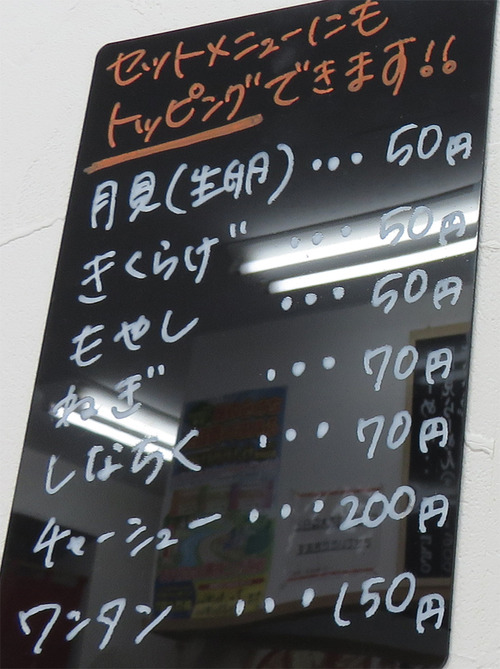 セットメニューにも
トッピングできます!!
月見(生卵)・・・50円
きくらげ・・・50円
もやし・・・50円
ねぎ・・・70円
しなちく・・・70円
チャーシュー・・・200円
ワンタン・・・150円